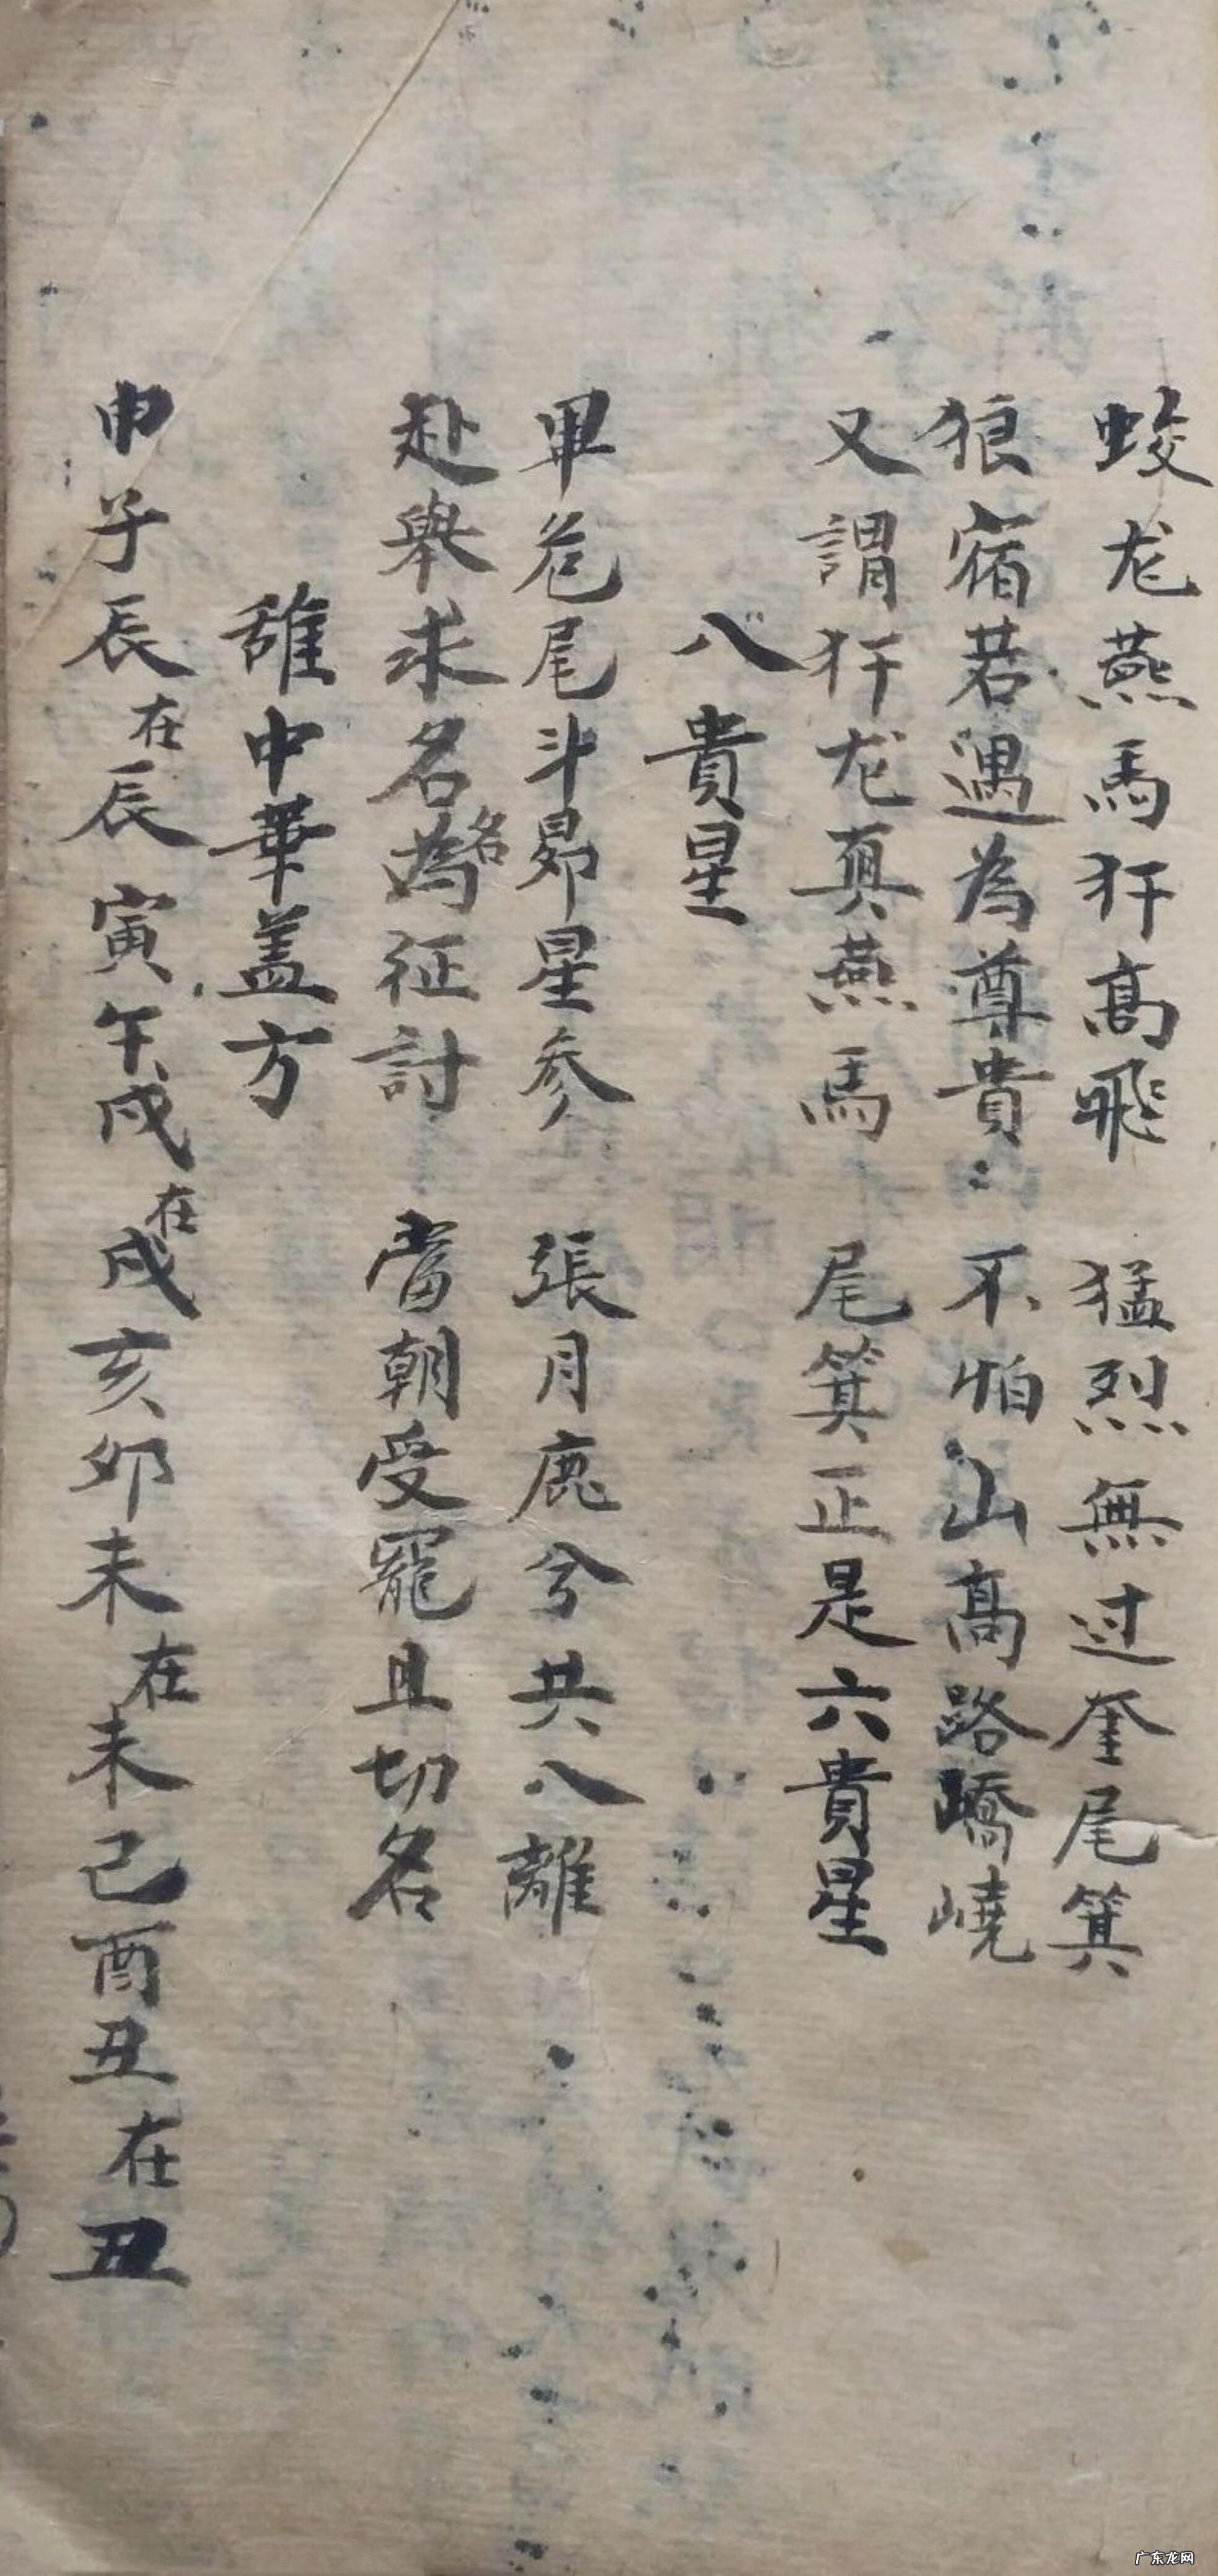 蛟龙燕馬犴高飛 猛烈無过奎尾箕
狼宿若遇為尊貴 不怕山高路嶠嶢
又謂犴龙真燕馬 尾箕正是六貴星
八貴星
畢危尾斗昴星參 張月鹿兮共八離
赴舉求名名為征討 當朝受寵且切名
中華盖方
申子辰在辰寅午戌在戌亥卯未在未己酉丑在丑
广东龙网